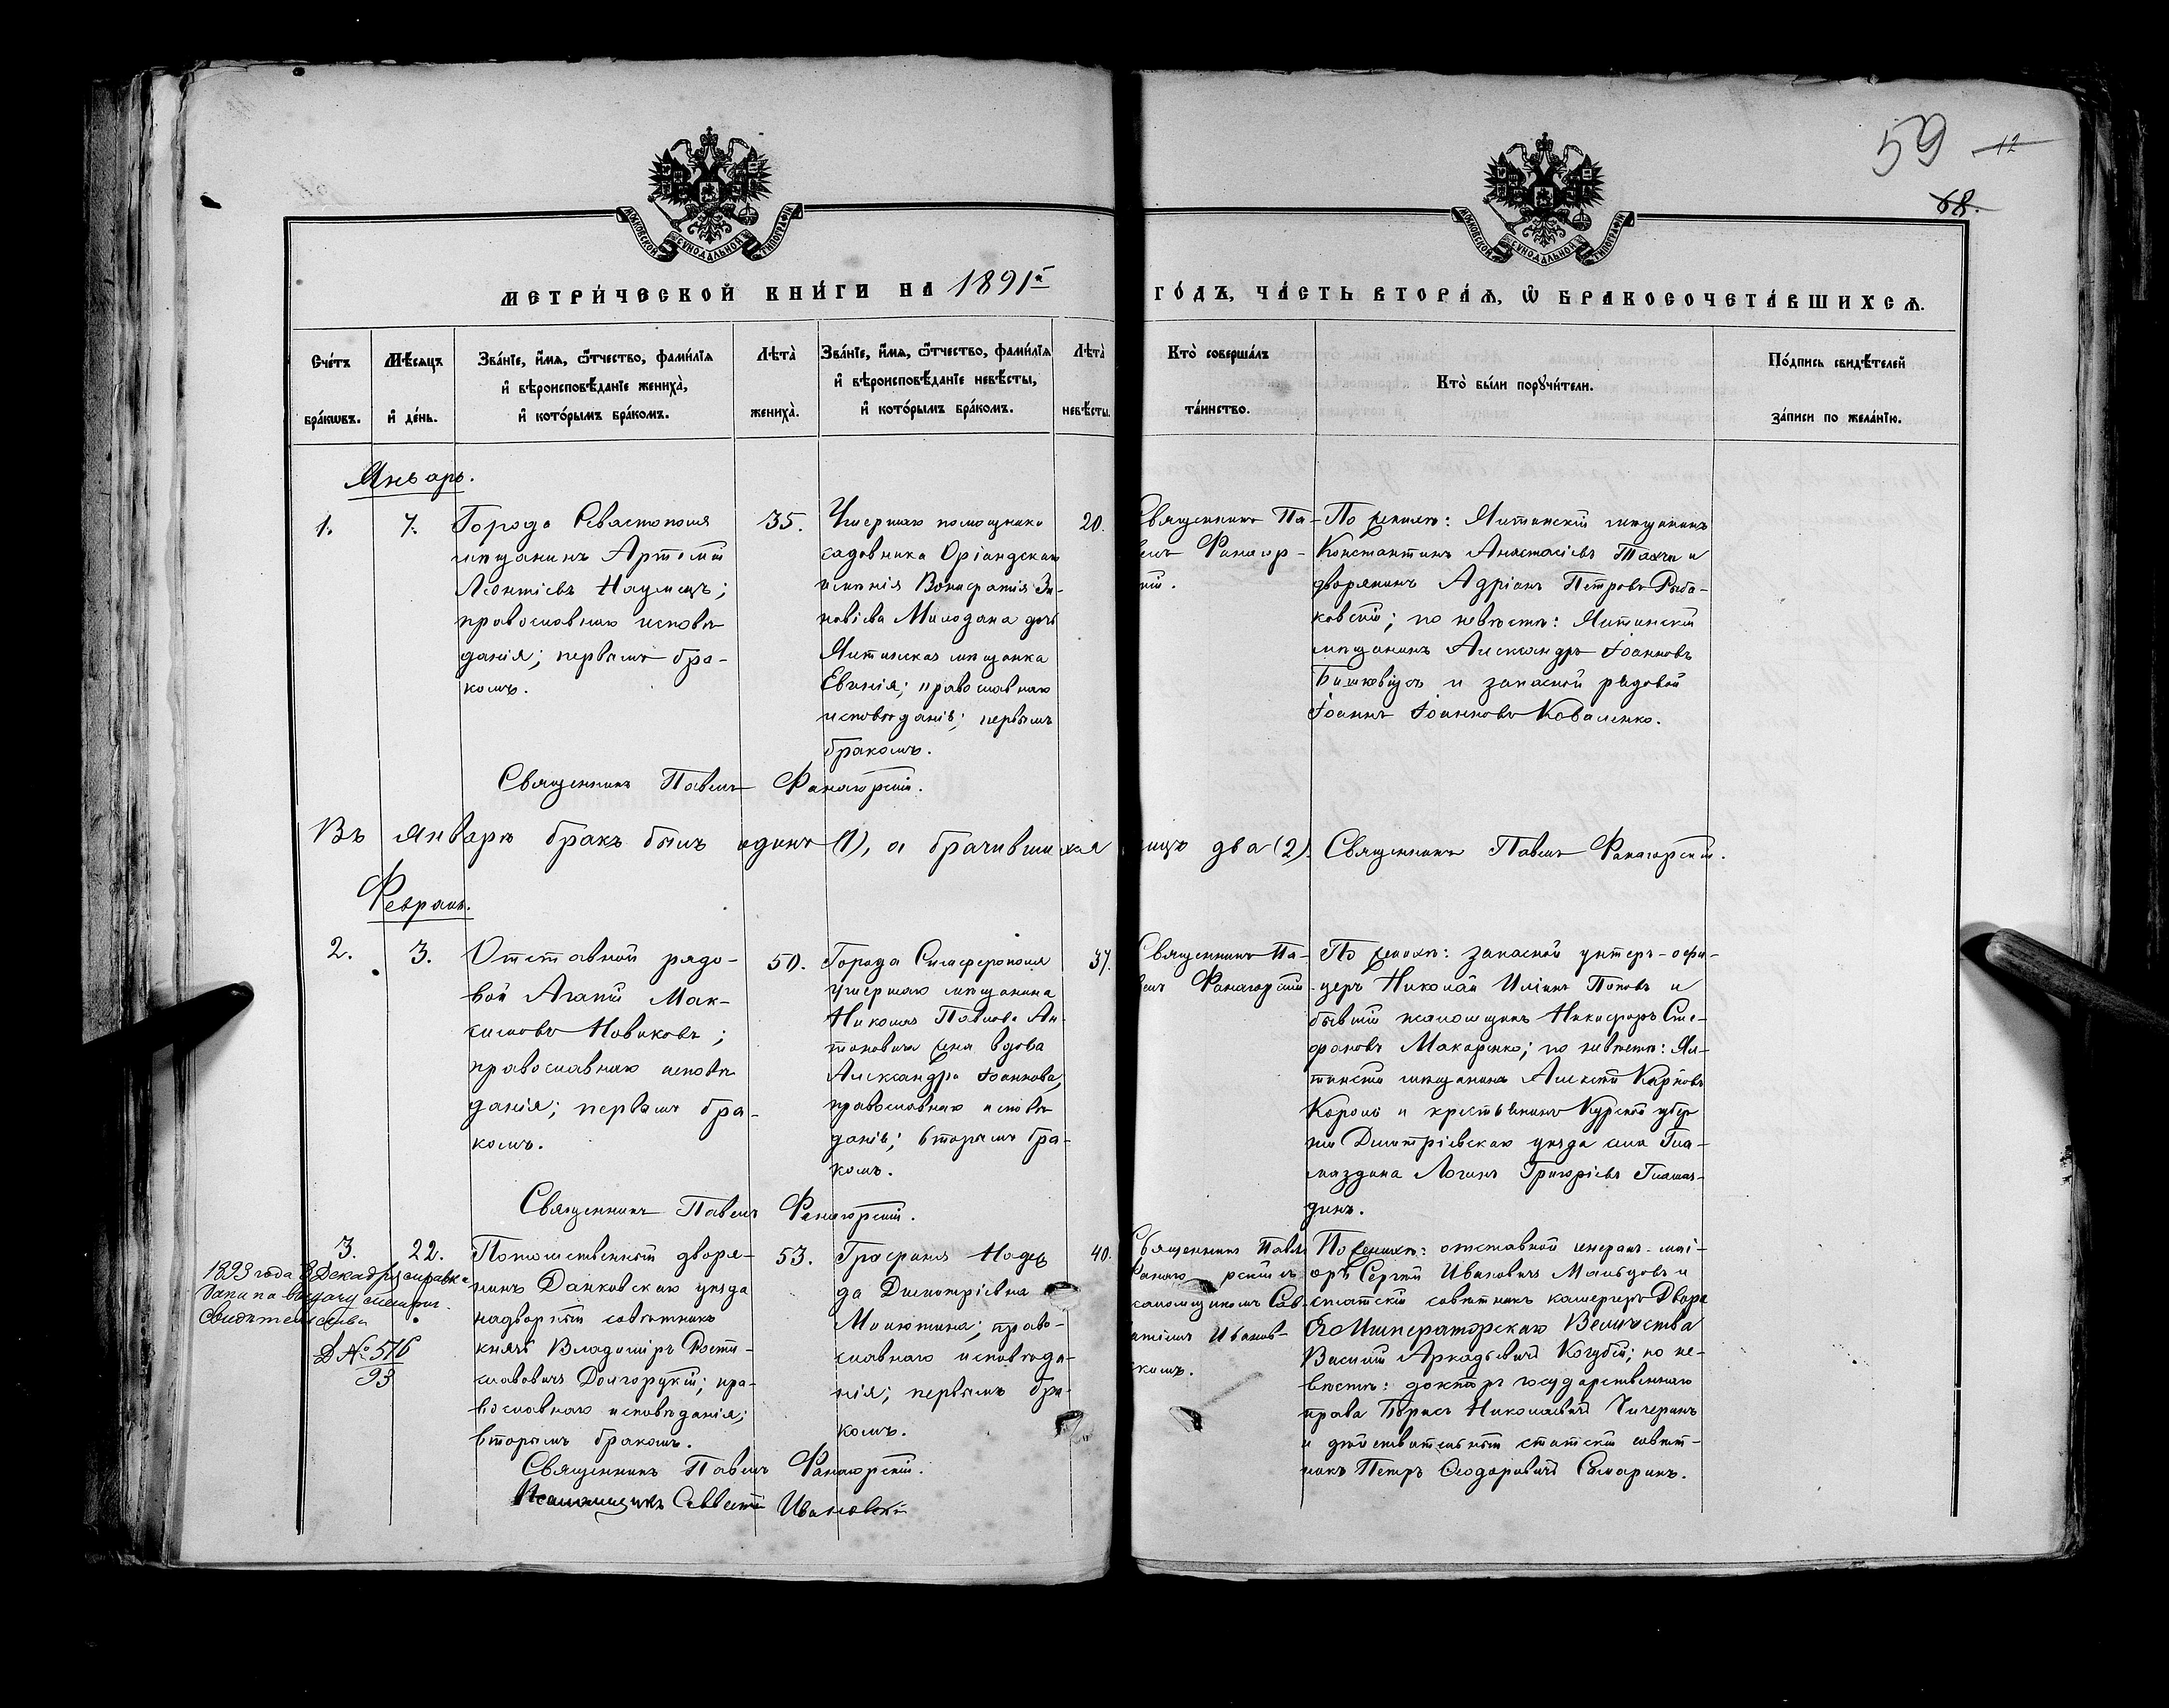 59 12
68.
МОСКОВСКОЙ СѴНОДАЛЬНОЙ ТИПОГРАФІИ
МОСКОВСКОЙ СѴНОДАЛЬНОЙ ТИПОГРАФІИ
МЕТРИ́ЧЕСКОЙ КНИ́ГИ НА 1891й ГО́ДЪ, ЧА́СТЬ ВТОРА́Ѧ, Ѽ БРАКОСОЧЕТА́ВШИХСѦ.
Сче́тъ бра́кѡвъ.
Мѣ́сяцъ и҆ де́нь.
Зва́нїе, и҆́мѧ, ѻ҆́тчество, фами́лїѧ
и҆ вѣроисповѣ́данїе жениха̀,
и҆ кото́рымъ бра́комъ.
Лѣта̀ жениха̀.
Зва́нїе, и҆́мѧ, ѻ҆́тчество, фами́лїѧ
и҆ вѣроисповѣ́данїе невѣ́сты,
и҆ кото́рымъ бра́комъ.
Лѣта̀ невѣ́сты.
Кто̀ соверша́лъ
та́инство.
Кто̀ бы́ли порꙋчи́тели.
По́дпись свидѣ́телей
за́писи по жела́нїю.
Январь.
1.
7.
Города Севастополя
мѣщанинъ Артемій
Леонтіевъ Наумецъ;
православнаго исповѣ
данія; первымъ бра-
комъ.
35.
Умершаго помощника
садовника Оріандскаго
имѣнія Вонифатія Зи-
новіева Милодана дочь
Ялтинская мѣщанка
Евгенія; православнаго
исповѣданія; первымъ
бракомъ.
20.
Священникъ Па-
велъ Фанагор-
скій.
По женихѣ: Ялтинскій мѣщанинъ
Константинъ Анастасіевъ и
дворянинъ Адріанъ Петровъ Рыба-
ковскій; по невѣстѣ: Ялтинскій
мѣщанинъ Александръ Іоанновъ
и запасной рядовой
Іоаннъ Іоанновъ Коваленко.
Священникъ Павелъ Фанагорскій.
Въ Январѣ бракъ былъ одинъ (1), а брачившихся лицъ два (2). Священникъ Павелъ Фанагорскій.
Февраль.
2.
3.
Отставной рядо-
вой Агапій Мак-
симовъ Новиковъ;
православнаго исповѣ
данія; первымъ бра-
комъ.
50.
Города Симферополя
умершаго мѣщанина
Николая Павлова Ан-
тоновича жена вдова
Александра Іоаннова,
православнаго исповѣ
данія; вторымъ бра-
комъ.
37.
Священникъ Па-
велъ Фанагорскій
По женихѣ: запасной унтеръ-офи-
церъ Николай Иліинъ Поповъ и
бывшій псаломщикъ Никифоръ Сте-
фановъ Макаренко; по невѣстѣ: Ял-
тинскій мѣщанинъ Алексѣй Карповъ
Король и крестьянинъ Курской губер
ніи Дмитріевскаго уѣзда села Гла-
маздина Логинъ Григоріевъ Гламаз-
динъ.
Священникъ Павелъ Фанагорскій.
3.
22.
1893 года 8 Декабря справка
дана на выдачу метрич.
свидѣтельства
Д № 576
93
Потомственный дворя-
нинъ Данковскаго уѣзда
надворный совѣтникъ
князь Владиміръ Рости-
славовичъ Долгорукій; пра-
вославнаго исповѣданія;
вторымъ бракомъ.
53.
Графиня Надеж
да Дмитріевна
Милютина; право-
славнаго исповѣда-
нія; первымъ бра-
комъ.
40.
Священникъ Павелъ
Фанагорскій съ
псаломщикомъ Сав-
ватіемъ Иванов-
скимъ.
По женихѣ: отставной генералъ-маі-
оръ Сергій Ивановичъ Мальцовъ и
статскій совѣтникъ камергеръ Двора
Его Императорскаго Величества
Василій Аркадьевичъ Кочубей; по не-
вѣстѣ: докторъ государственнаго
права Борисъ Николаевичъ Чичеринъ
и дѣйствительный статскій совѣт-
никъ Петръ Ѳеодоровичъ Самаринъ.
Священникъ Павелъ Фанагорскій.
Псаломщикъ Савватій Ивановскій